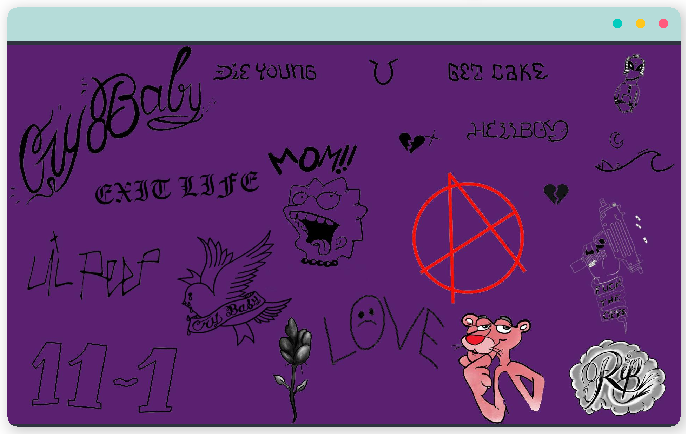 Cry Baby
DIE YOUNG
GET CAKE
HELLBOY
MOM!!
EXIT LIFE
LiL PEEP
Cry Baby
LOVE
11-1
Rip